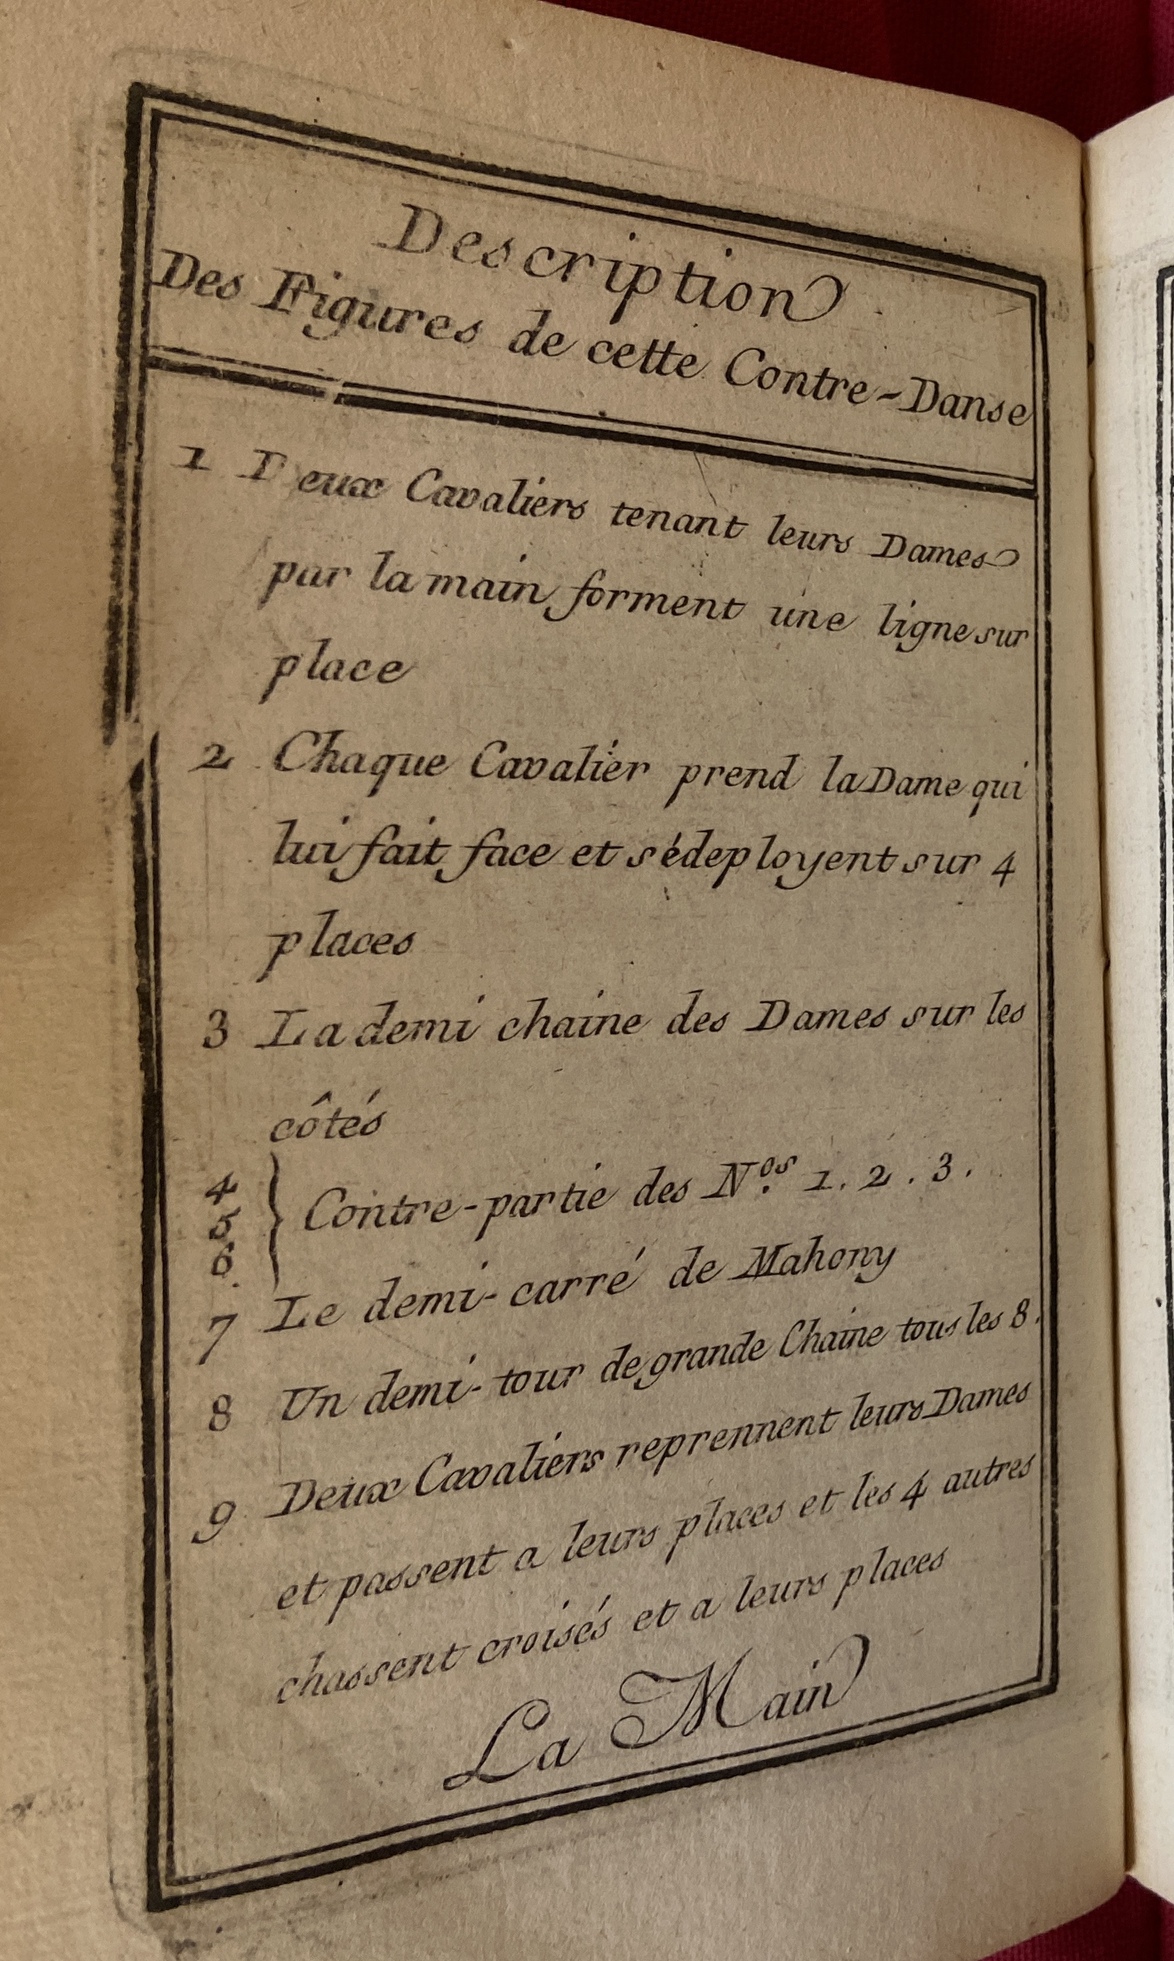 Description
Des Figures de cette Contre-Danse
1 Deux Cavaliers tenant leurs Dames
par la main forment une ligne sur
place
2 Chaque Cavalier prend la Dame qui
lui fait face et s'édeployent sur 4
places
3 La demi chaine des Dames sur les
côtés
4
5 } Contre-partie des N.os 1. 2. 3.
6.
7 Le demi-carré de Mahony
8 Un demi-tour de grande Chaine tous les 8.
9 Deux Cavaliers reprennent leurs Dames
et passent a leurs places et les 4 autres
chassent croisés et a leurs places
La Main